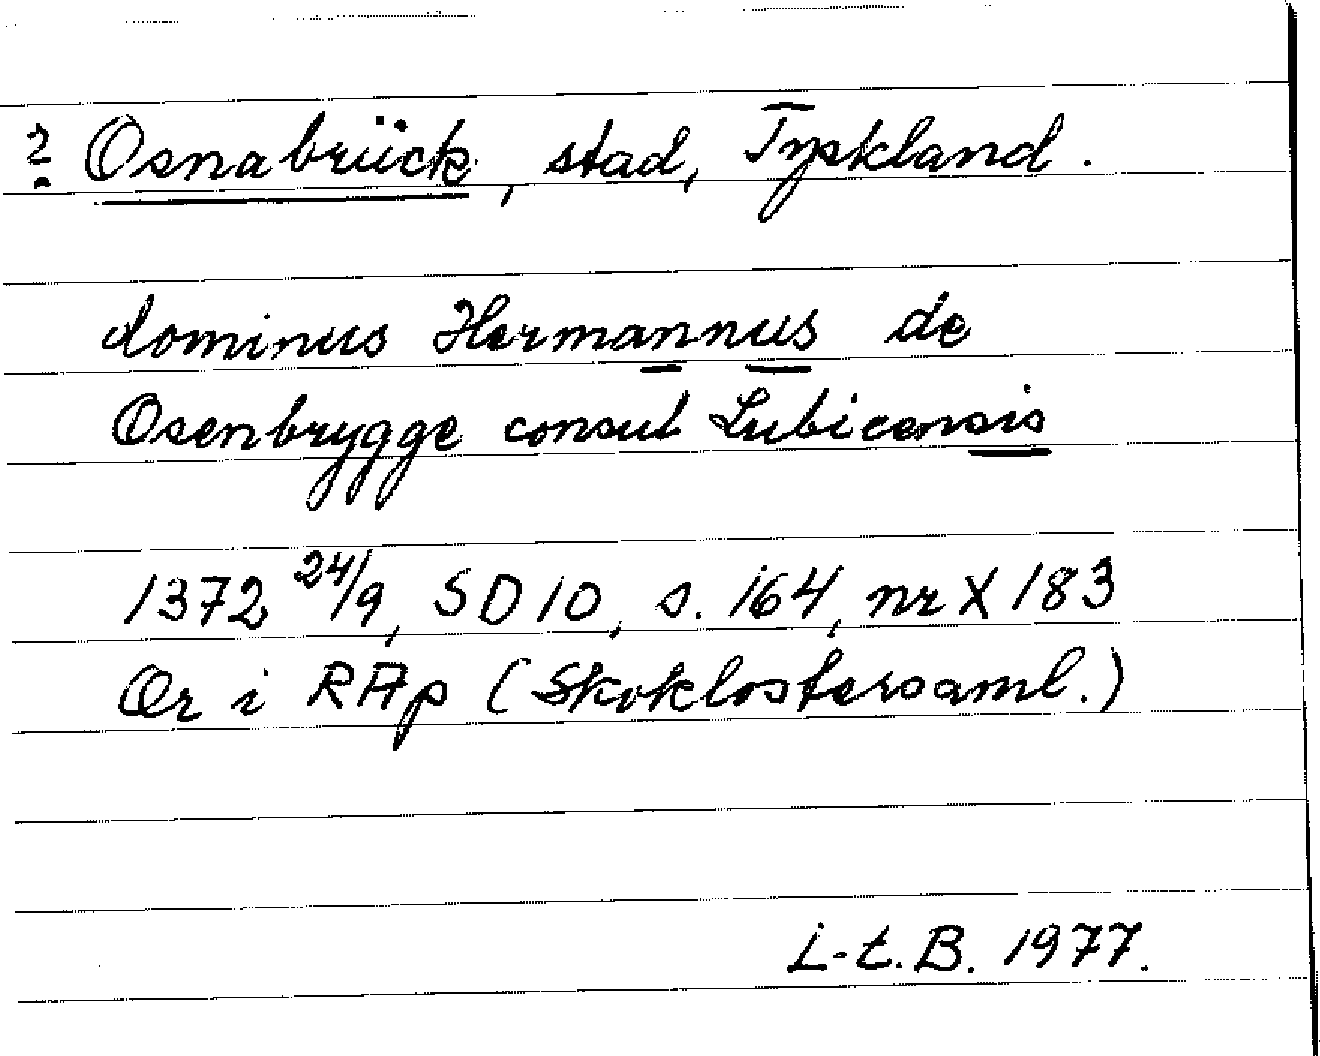 ? Osnabrück, stad, Tyskland.
dominus Hermannus de
Osenbrygge consul Lubicensis
1372 24/9, SD 10, s. 164, nr X 183
Or i RAp (Skoklostersaml.)
L-t. B. 1977.